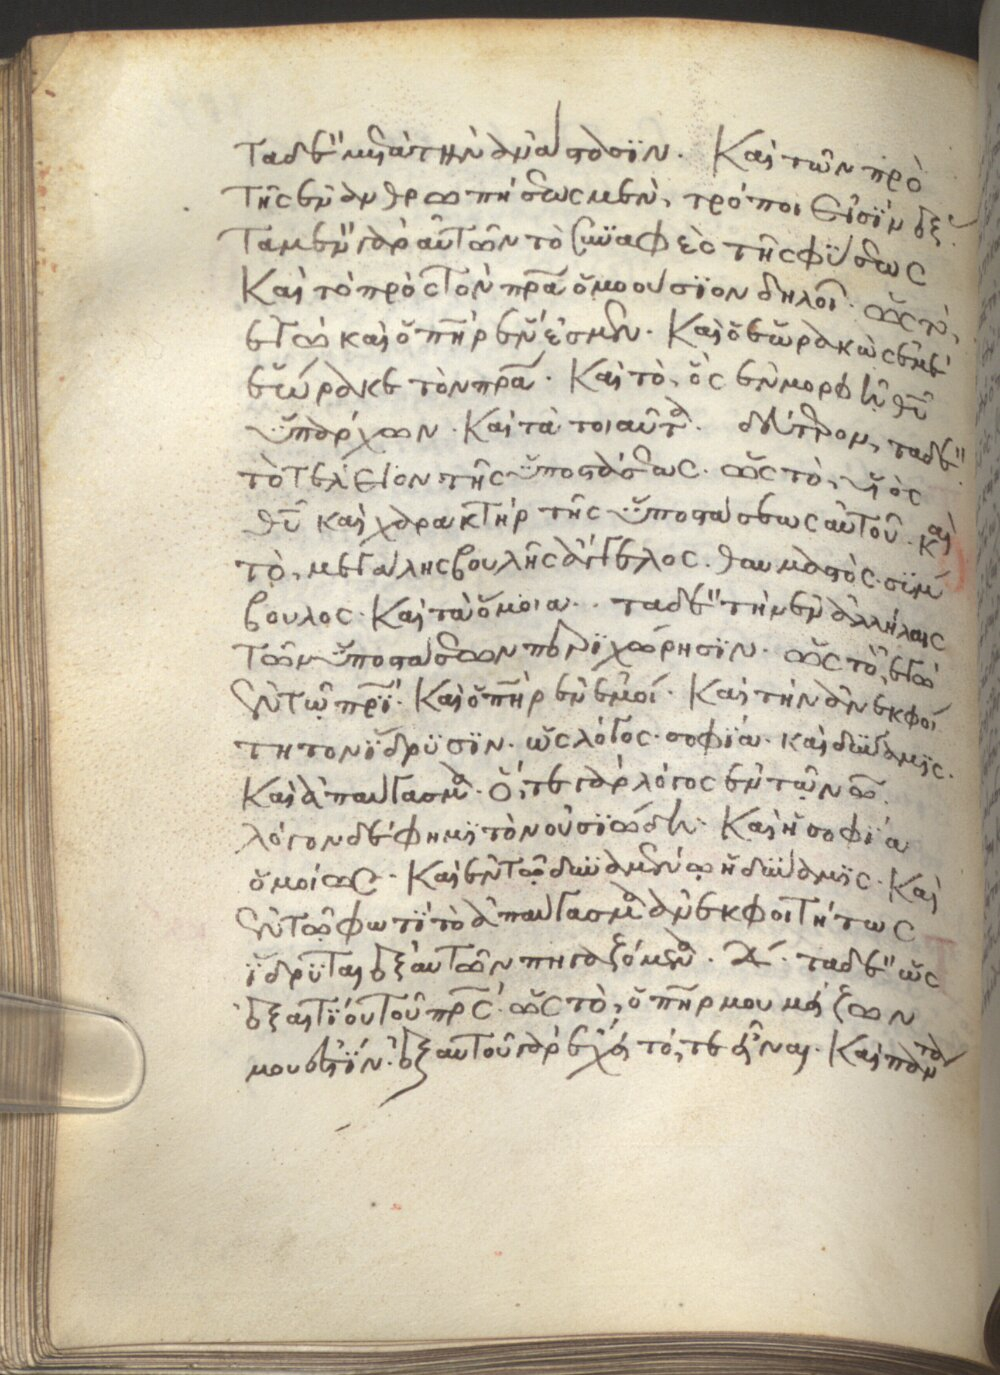 τὰ δὲ μετὰ τὴν ἀνάστασιν. Καὶ τῶν πρὸ
τῆς ἐνανθρωπήσεως μὲν, τρόποι εἰσὶν ἕξ.
τὰ μὲν γὰρ αὐτῶν τὸ συναφὲς τῆς φύσεως
Καὶ τὸ πρὸς τὸν πρα ὁμοούσιον δηλοῖ. ὡς τὸ,
ἐγὼ καὶ ὁ πηρ ἕν ἐσμεν. Καὶ ὁ ἑωρακὼς ἐμὲ
ἑώρακε τὸν πρα. Καὶ τὸ, ὃς ἐν μορφῇ θυ
ὑπάρχων. Καὶ τὰ τοιαῦτα. τὰ δὲ
τὸ τέλειον τῆς ὑποστάσεως. ὡς τὸ, υἱὸς
θυ καὶ χαρακτὴρ τῆς ὑποστάσεως αὐτοῦ. καὶ
τὸ, μεγάλης βουλῆς ἄγγελος. θαυμαστὸς σύμ
βουλος. Καὶ τὰ ὅμοια. τὰ δὲ τὴν ἐν ἀλλήλαις
τῶν ὑποστάσεων περιχώρησιν. ὡς τὸ, ἐγὼ
ἐν τῷ πρι. Καὶ ὁ πηρ ἐν ἐμοί. Καὶ τὴν ἀνεκφοί
τητον ἵδρυσιν. ὡς λόγος. σοφία. καὶ δύναμις.
Καὶ ἀπαύγασμα. ὅ, τε γὰρ λόγος ἐν τῷ νῷ.
λόγον δέ φημι τὸν οὐσιώδη. Καὶ ἡ σοφία
ὁμοίως. Καὶ ἐν τῷ δυναμένῳ ἡ δύναμις. Καὶ
ἐν τῷ φωτὶ τὸ ἀπαύγασμα ἀνεκφοιτήτως
ἵδρυται ἐξ αὐτῶν πηγαζόμενα. τὰ δὲ ὡς
ἐξ αἰτίου τοῦ πρς. ὡς τὸ, ὁ πηρ μου μείζων
μου ἐστίν. ἐξ αὐτοῦ γὰρ ἔχει τό, τε εἶναι. Καὶ πάντα